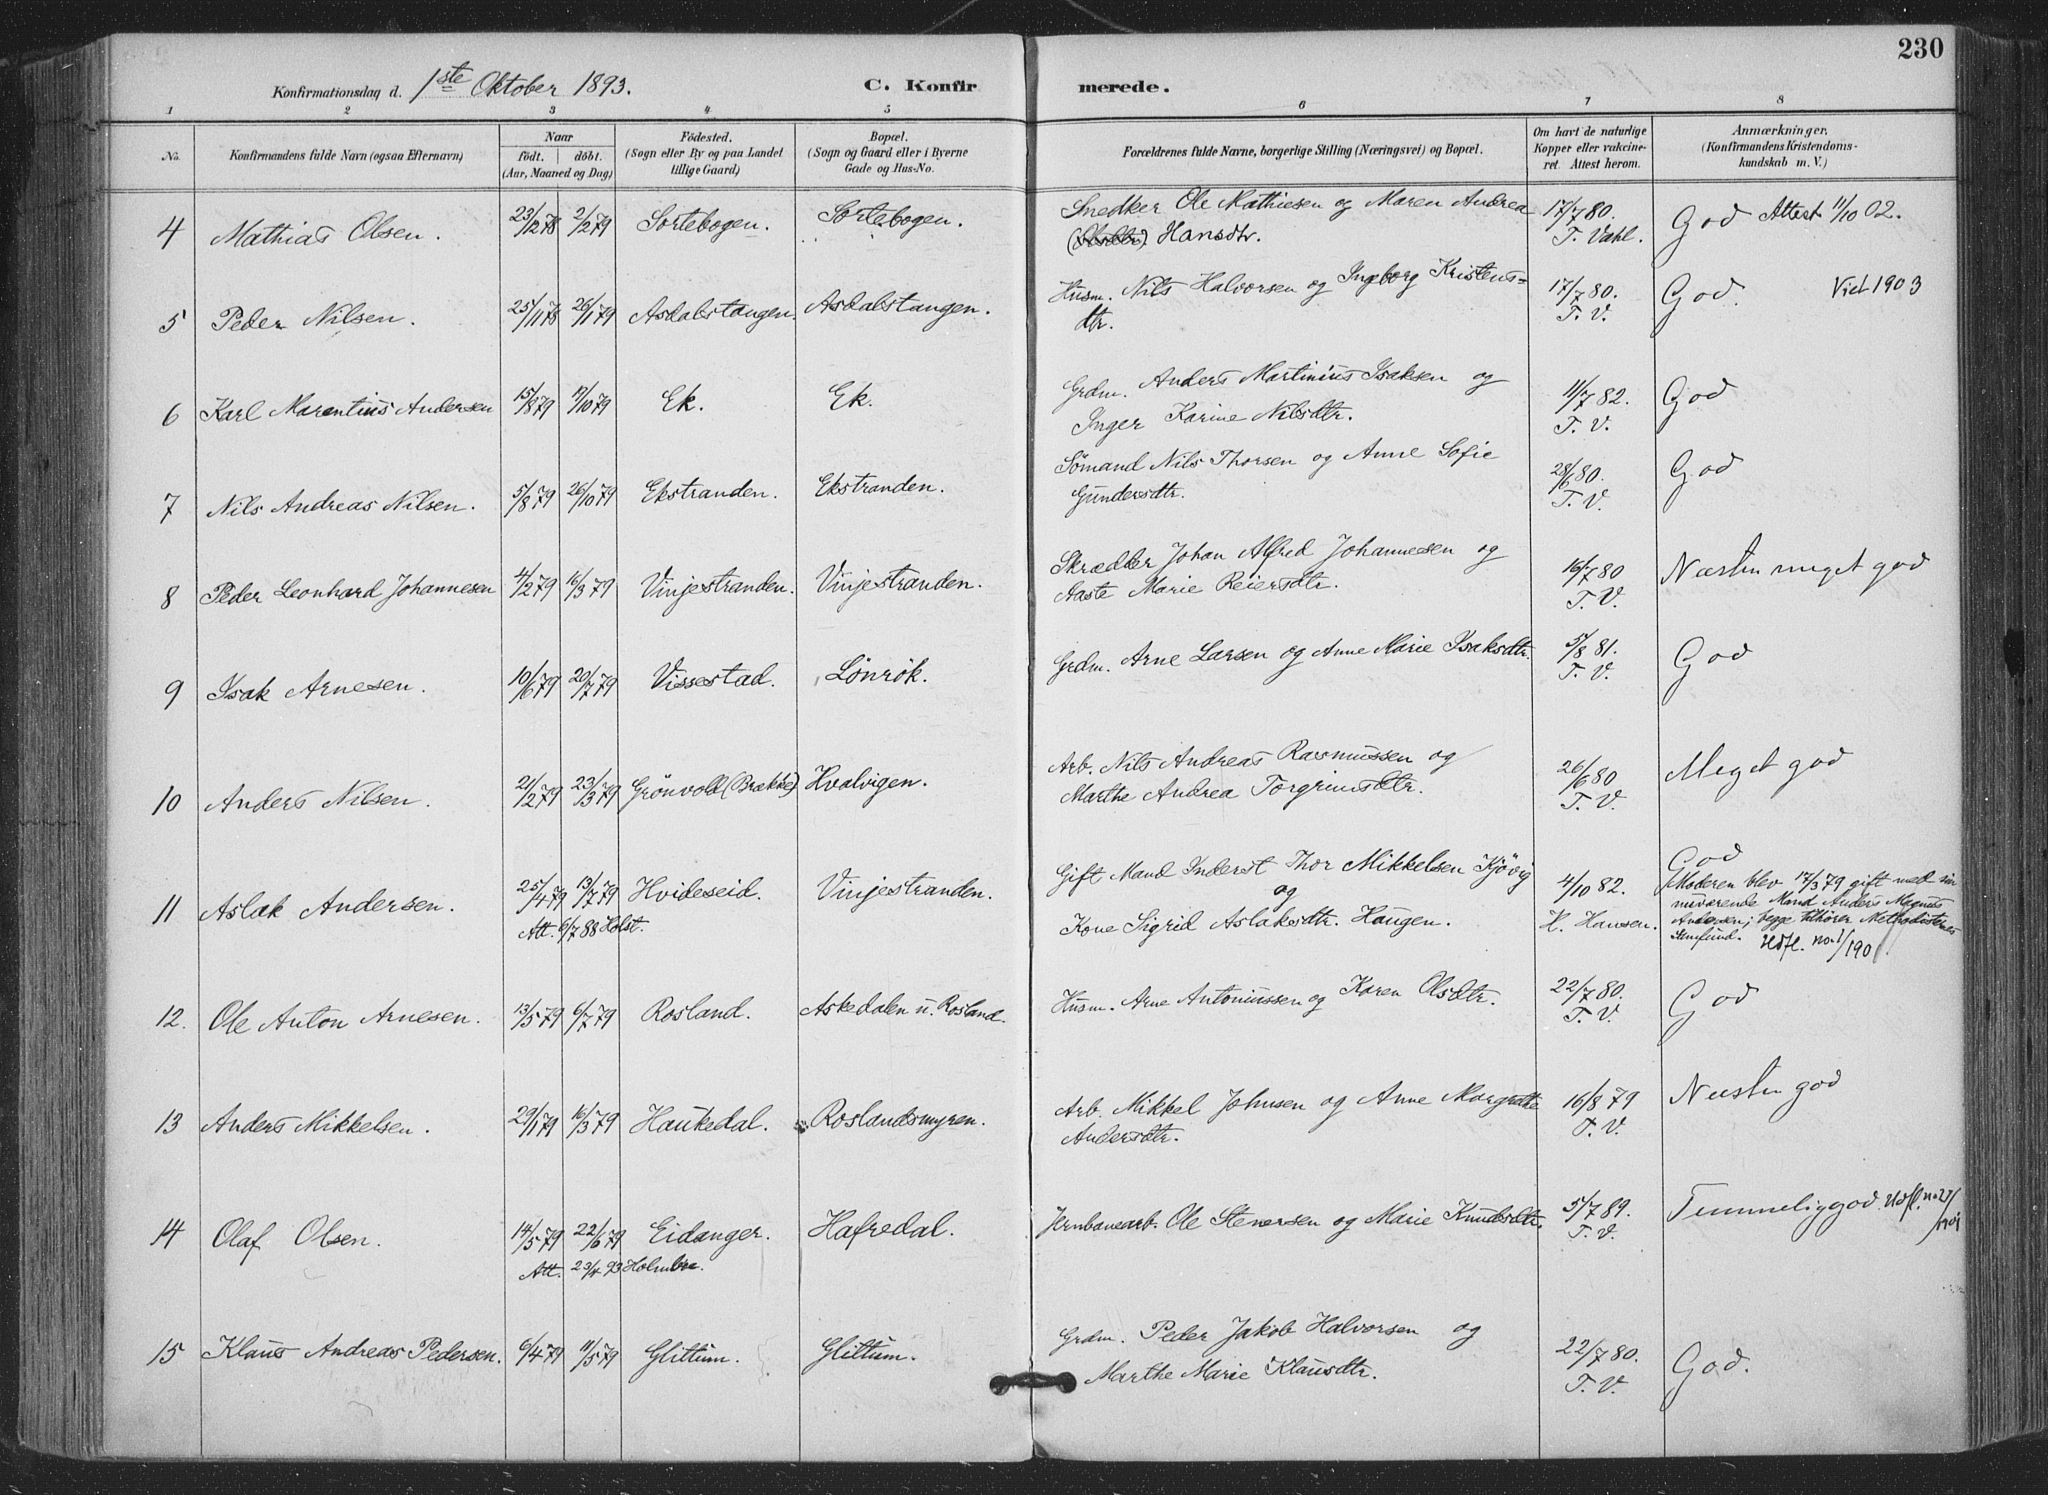 230
Konfirmationsdag d. 1ste Oktober 1893. C. Konfirmerede.
1 2 3 4 5 6 7 8
No. Konfirmandens fulde Navn (ogsaa Efternavn) Naar födt. döbt. (Aar, Maaned og Dag) Födested. (Sogn eller By og paa Landet tillige Gaard) Bopæl. (Sogn og Gaard eller i Byerne Gade og Hus-No.) Forældrenes fulde Navne, borgerlige Stilling (Næringsvei) og Bopæl. Om havt de naturlige Kopper eller vakcineret. Attest herom. Anmærkninger. (Konfirmandens Kristendomskundskab m. V.)
4 Mathias Olsen. 23/12 78 2/2 79 Sortebogen. Sortebogen. Snedker Ole Mathiesen og Maren Andrea
Hansdtr. 17/7 80. T. Vahl. God Attest 11/10 02.
5 Peder Nilsen. 25/11 78 26/1 79 Asdalstangen. Asdalstangen. Husm. Nils Halvorsen og Ingeborg Kristens=
dtr. 17/7 80. T. V. God. Viet 1903
6 Karl Marentius Andersen 15/8 79 17/10 79 Ek. Ek. Grdm. Anders Martinius Isaksen og
Inger Karine Nilsdtr. 11/7 82. T. V. God
7 Nils Andreas Nilsen. 5/8 79 26/10 79 Ekstranden. Ekstranden. Sömand Nils Thorsen og Anne Sofie
Gundersdtr. 28/6 80. T. V. God
8 Peder Leonhard Johannesen 4/2 79 16/3 79 Vinjestranden. Vinjestranden. Skrædder Johan Alfred Johannesen og
Aaste Marie Reiersdtr. 16/7 80 T. V. Næsten meget god
9 Isak Arnesen. 10/6 79 20/7 79 Vissestad. Lönrök. Grdm. Arne Larsen og Anne Marie Isaksdtr. 5/8 81. T. V. God
10 Anders Nilsen. 21/2 79 23/3 79 Grönvold (Brække) Hvalvigen. Arb. Nils Andreas Rasmussen og
Marthe Andrea Torgrimsdtr. 26/6 80 T. V. Meget god
11 Aslak Andersen. 25/4 79 13/7 79 Hvideseid. Vinjestranden. Gift Mand Inderst Thor Mikkelsen Kjövig
og
Kone Sigrid Aslaksdtr. Haugen. 4/10 82. H. Hansen. God
Att. 6/7 88 Holst.
Moderen blev 17/3 79 gift med sin
nuværende Mand Anders Magnus
Andersen; begge tilhører Methodisternes
Samfund. Udfl. no. 1/1901.
12. Ole Anton Arnesen. 13/5 79 6/7 79 Rosland. Askedalen u. Rosland. Husm. Arne Antoniussen og Karen Olsdtr. 22/7 80. T. V. God
13 Anders Mikkelsen. 29/1 79 16/3 79 Haukedal. Roslandsmyren. Arb. Mikkel Johnsen og Anne Margrethe
Andersdtr. 16/8 79 T. V. Næsten god
14 Olaf Olsen. 14/5 79 22/6 79 Eidanger. Hafredal. Jernbanearb. Ole Stenersen og Marie Knudsdtr. 5/7 89. T. V. Temmelig god. Udfl. no
Att. 23/4 93 Holmboe.
15 Klaus Andreas Pedersen. 6/4 79 11/5 79 Glittum. Glittum. Grdm. Peder Jakob Halvorsen og
Marthe Marie Klausdtr. 22/7 80. T. V. God.